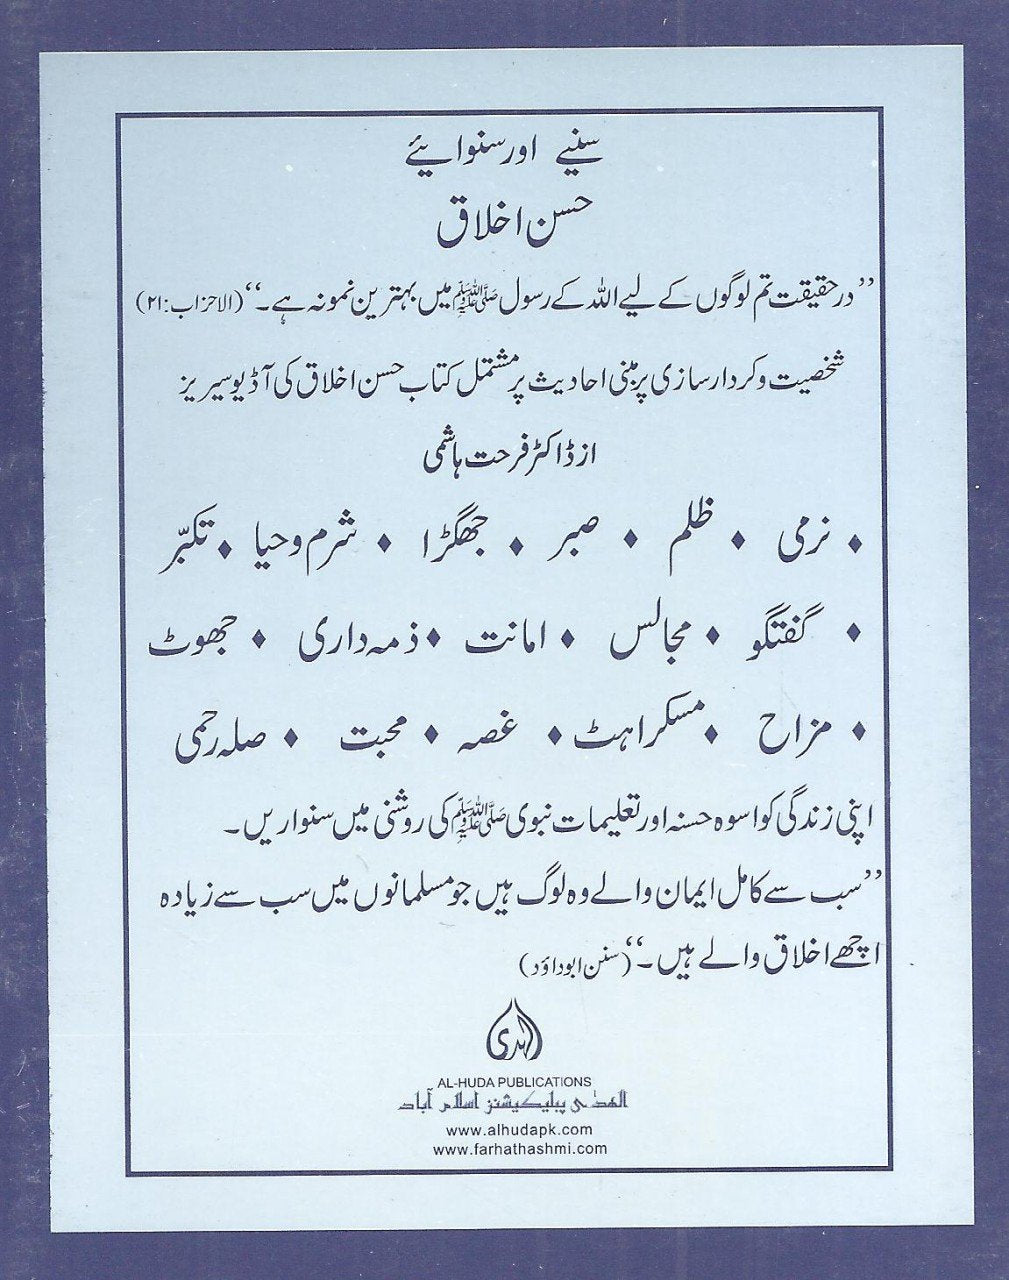 سنیے اور سنوائیے
حسن اخلاق
”در حقیقت تم لوگوں کے لیے اللہ کے رسول ﷺ میں بہترین نمونہ ہے۔“ (الاحزاب:۲۱)
شخصیت و کردار سازی پر مبنی احادیث پر مشتمل کتاب حسن اخلاق کی آڈیو سیریز
از ڈاکٹر فرحت ہاشمی
♦ نرمی ♦ ظلم ♦ صبر ♦ جھگڑا ♦ شرم و حیا ♦ تکبّر
♦ گفتگو ♦ مجالس ♦ امانت ♦ ذمہ داری ♦ جھوٹ
♦ مزاح ♦ مسکراہٹ ♦ غصہ ♦ محبت ♦ صلہ رحمی
اپنی زندگی کو اسوہ حسنہ اور تعلیمات نبوی ﷺ کی روشنی میں سنواریں۔
”سب سے کامل ایمان والے وہ لوگ ہیں جو مسلمانوں میں سب سے زیادہ
اچھے اخلاق والے ہیں۔“ (سنن ابوداؤد)
الہدی
AL-HUDA PUBLICATIONS
الھدٰی پبلیکیشنز اسلام آباد
www.alhudapk.com
www.farhathashmi.com